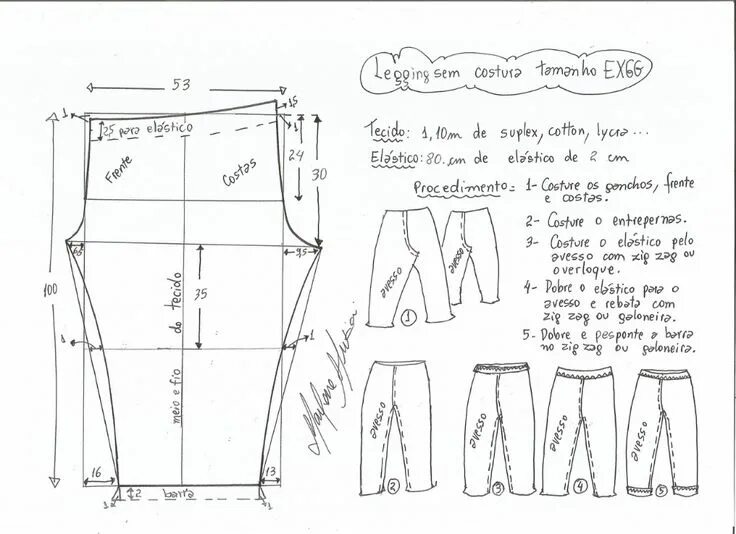 Legging sem costura tamanho EXGG
53
Tecido: 1,10m de suplex, cotton, lycra...
Elástico: 80 cm de elástico de 2 cm
Procedimento = 1- Costure os ganchos, frente
e costas.
2- Costure o entrepernas.
3- Costure o elástico pelo
avesso com zig zag ou
overloque.
4- Dobre o elástico para o
avesso e rebata com
zig zag ou galoneira.
5- Dobre e pesponte a barra
no zig zag ou galoneira.
53
1
1,5
1
2,5 para elástico
Frente
Costas
24
30
6,5
9,5
100
35
meio e fio do tecido
1
1
16
13
1
2
barra
1
avesso
avesso
1
avesso
2
avesso
3
avesso
4
avesso
5